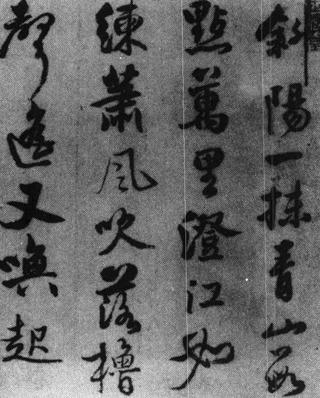 斜陽一抹青山數
點萬里澄江如
練蕭風吹落櫓
聲遙又喚起